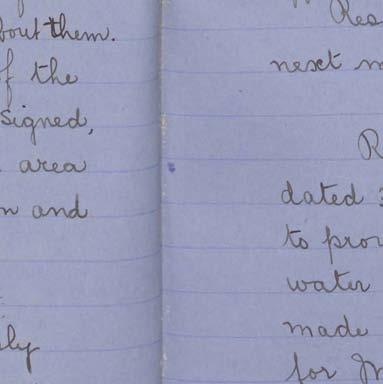 bout them.
of the
signed,
area
and
ily
Res
next m
R
dated 3
to prov
water
made
for M